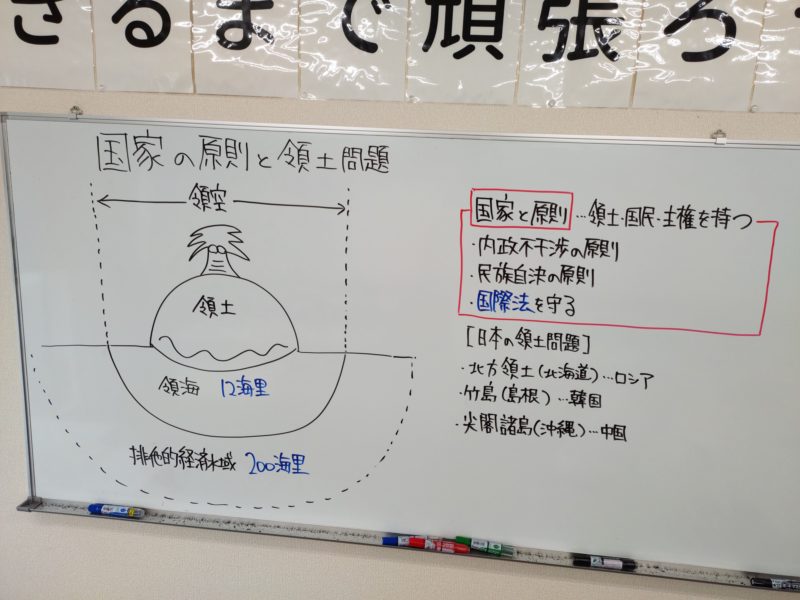 さるまで頑張ろ
国家の原則と領土問題
領空
領土
領海 12海里
排他的経済水域 200海里
国家と原則 …領土・国民・主権を持つ
・内政不干渉の原則
・民族自決の原則
・国際法を守る
[日本の領土問題]
・北方領土(北海道)…ロシア
・竹島(島根)…韓国
・尖閣諸島(沖縄)…中国